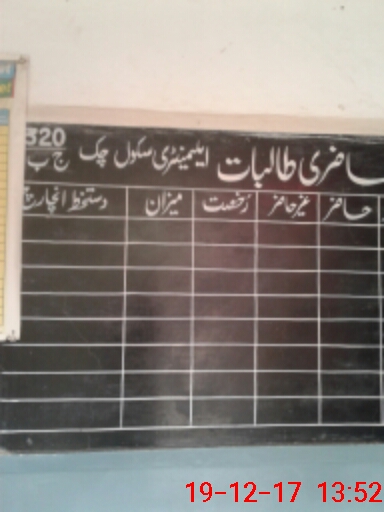 حاضری طالبات ایلیمنٹری سکول چک 320 ج ب
حاضر غیر حاضر رخصت میزان دستخط انچارج
19-12-17 13:52